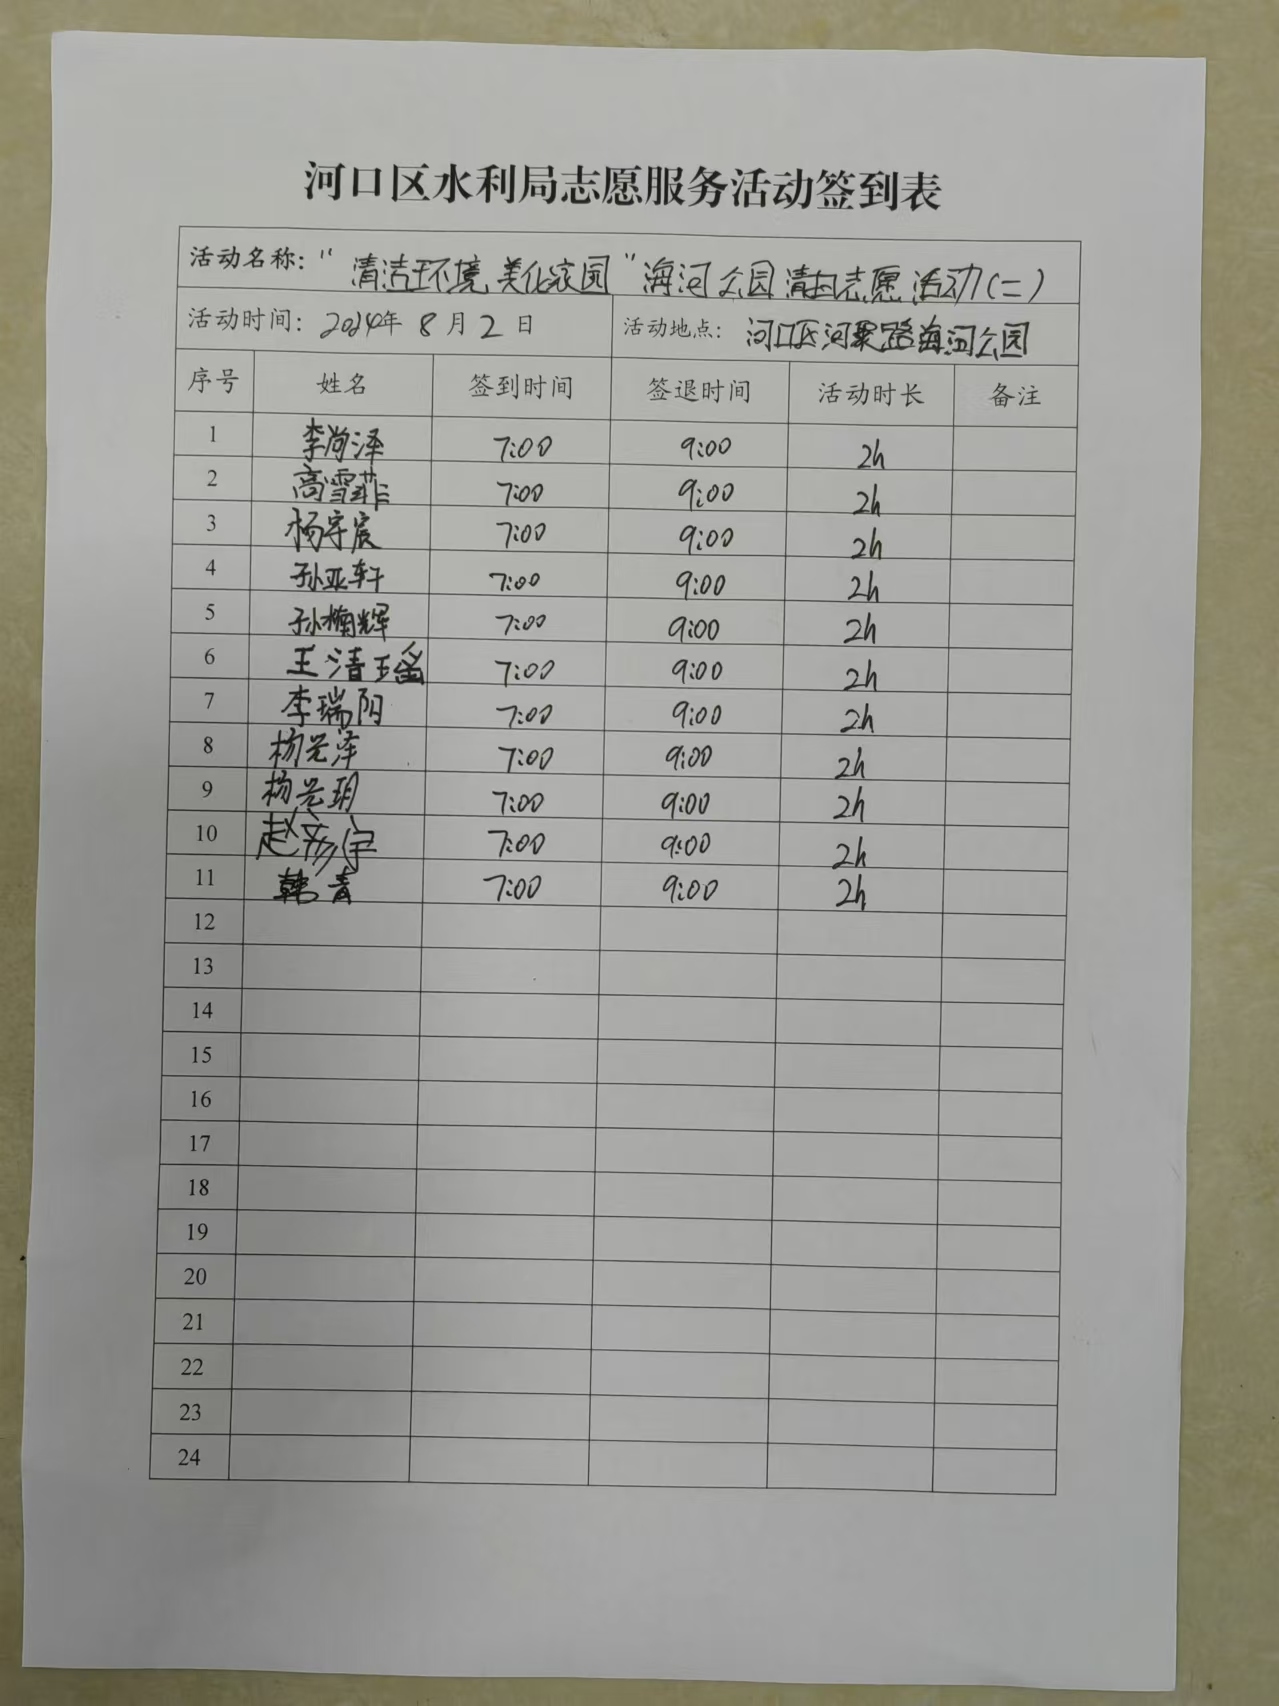 河口区水利局志愿服务活动签到表
活动名称：“清洁环境 美化家园”海河公园清扫志愿活动（二）
活动时间：2024年8月2日 活动地点：河口区河聚路海河公园
序号 姓名 签到时间 签退时间 活动时长 备注
1 李尚泽 7:00 9:00 2h
2 高雪菲 7:00 9:00 2h
3 杨宇宸 7:00 9:00 2h
4 孙亚轩 7:00 9:00 2h
5 孙楠辉 7:00 9:00 2h
6 王清瑶 7:00 9:00 2h
7 李瑞阳 7:00 9:00 2h
8 杨光泽 7:00 9:00 2h
9 杨光玥 7:00 9:00 2h
10 赵彦宇 7:00 9:00 2h
11 韩青 7:00 9:00 2h
12
13
14
15
16
17
18
19
20
21
22
23
24